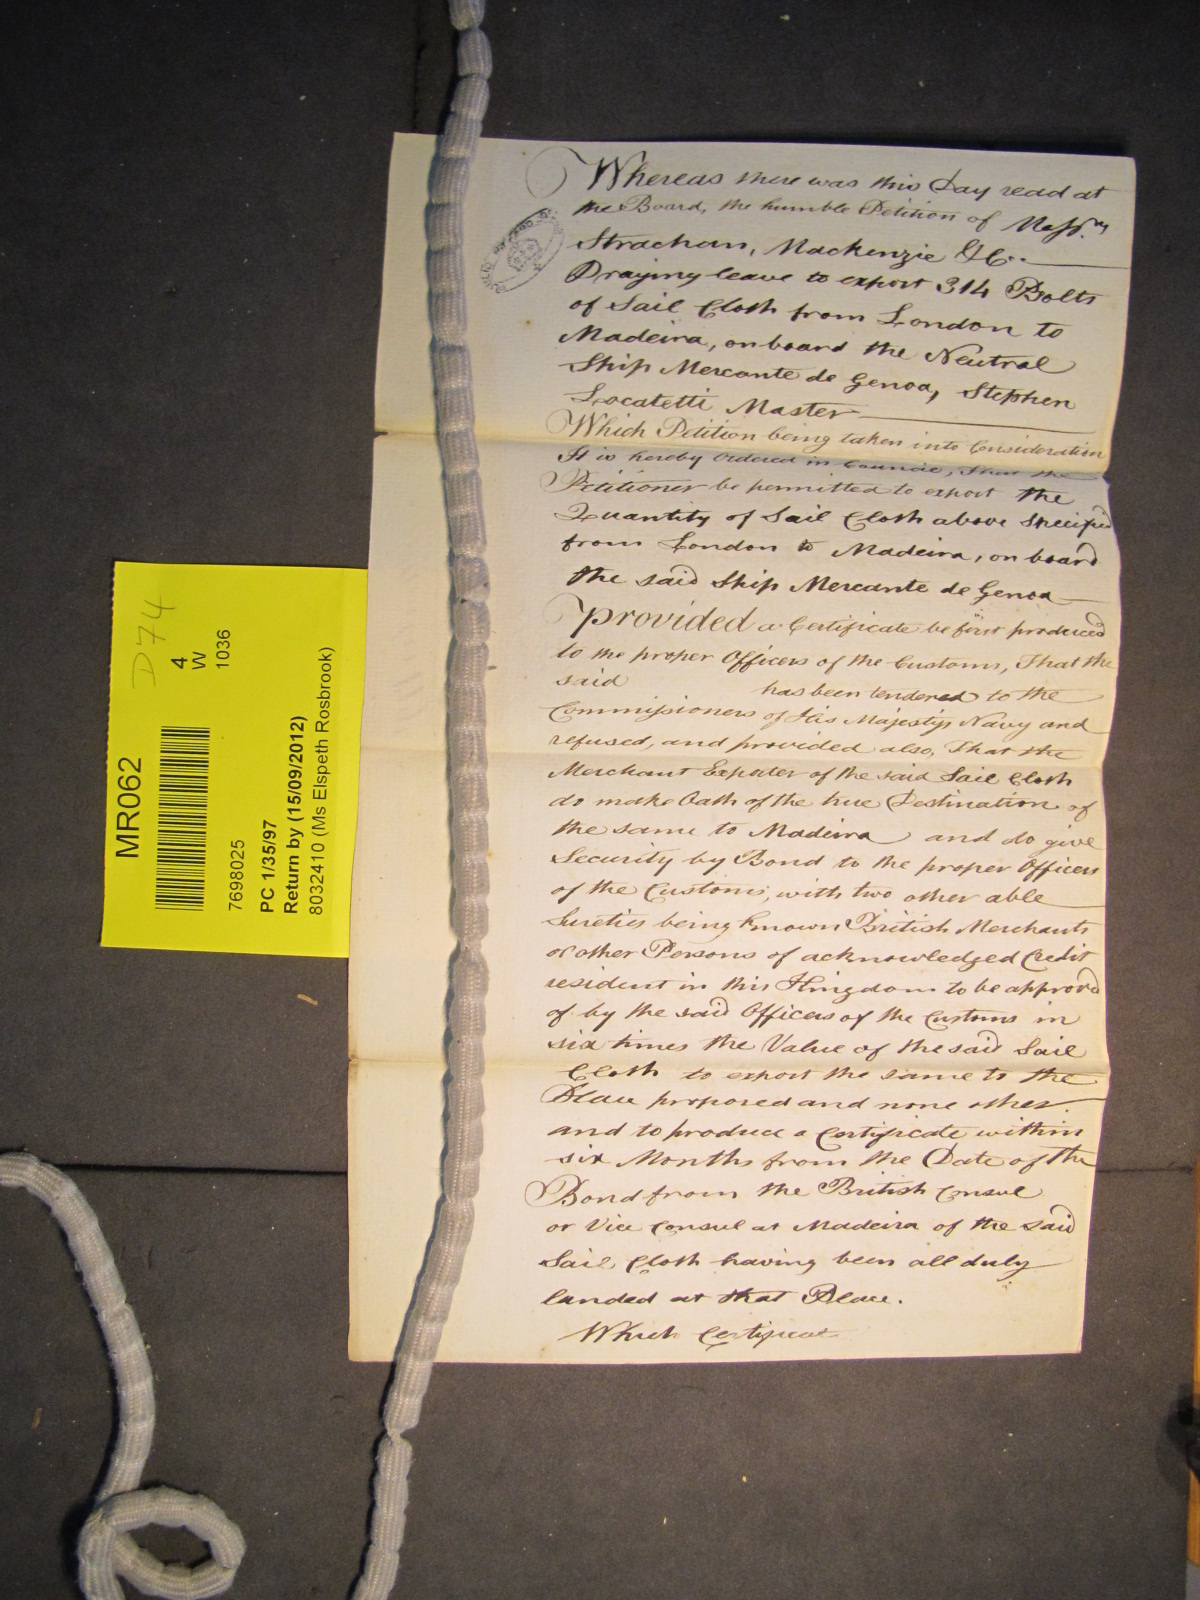 Whereas there was this Day read at
the Board, the humble Petition of Mess.rs
Strachan, Mackenzie & Co.
Praying leave to export 314 Bolts
of Sail Cloth from London to
Madeira, on board the Neutral
Ship Mercante de Genoa, Stephen
Locatetti Master
Which Petition being taken into Consideration
It is hereby Ordered in Council, That the
Petitioner be permitted to export the
Quantity of Sail Cloth above Specified
from London to Madeira, on board
the said Ship Mercante de Genoa
Provided a Certificate be first produced
to the proper Officers of the Customs, That the
said has been tendered to the
Commissioners of His Majestys Navy and
refused, and provided also, That the
Merchant Exporter of the said Sail Cloth
do make Oath of the true Destination of
the same to Madeira and do give
Security by Bond to the proper Officers
of the Customs, with two other able
Sureties being known British Merchants
or other Persons of acknowledged Credit
resident in this Kingdom to be approved
of by the said Officers of the Customs in
six times the Value of the said Sail
Cloth to export the same to the
Place proposed and none other.
and to produce a Certificate within
six Months from the Date of the
Bond from the British Consul
or Vice Consul at Madeira of the said
Sail Cloth having been all duly
landed at that Place.
Which Certificate
D74
4
W
1036
MR062
7698025
PC 1/35/97
Return by (15/09/2012)
8032410 (Ms Elspeth Rosbrook)